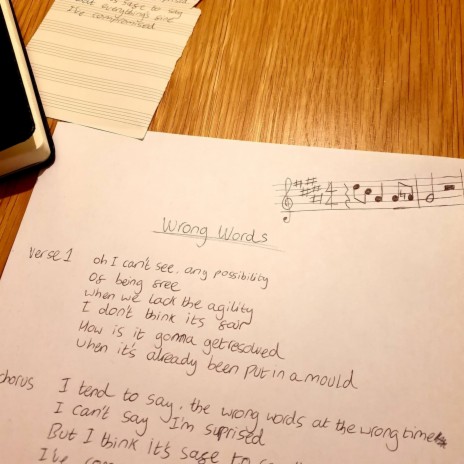 sage to say
But everything's fine
I've compromised
Wrong Words
verse 1
oh I can't see. any possibility
Of being free
when we lack the agility
I don't think it's fair
How is it gonna get resolved
when it's already been put in a mould
chorus
I tend to say, the wrong words at the wrong time
I can't say I'm suprised
But I think it's sage to
I've